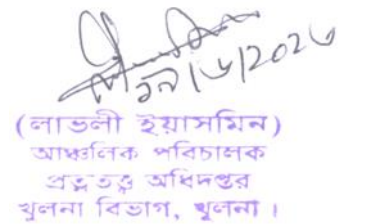 (লাভলী ইয়াসমিন)
আঞ্চলিক পরিচালক
প্রত্নতত্ত্ব অধিদপ্তর
খুলনা বিভাগ, খুলনা।